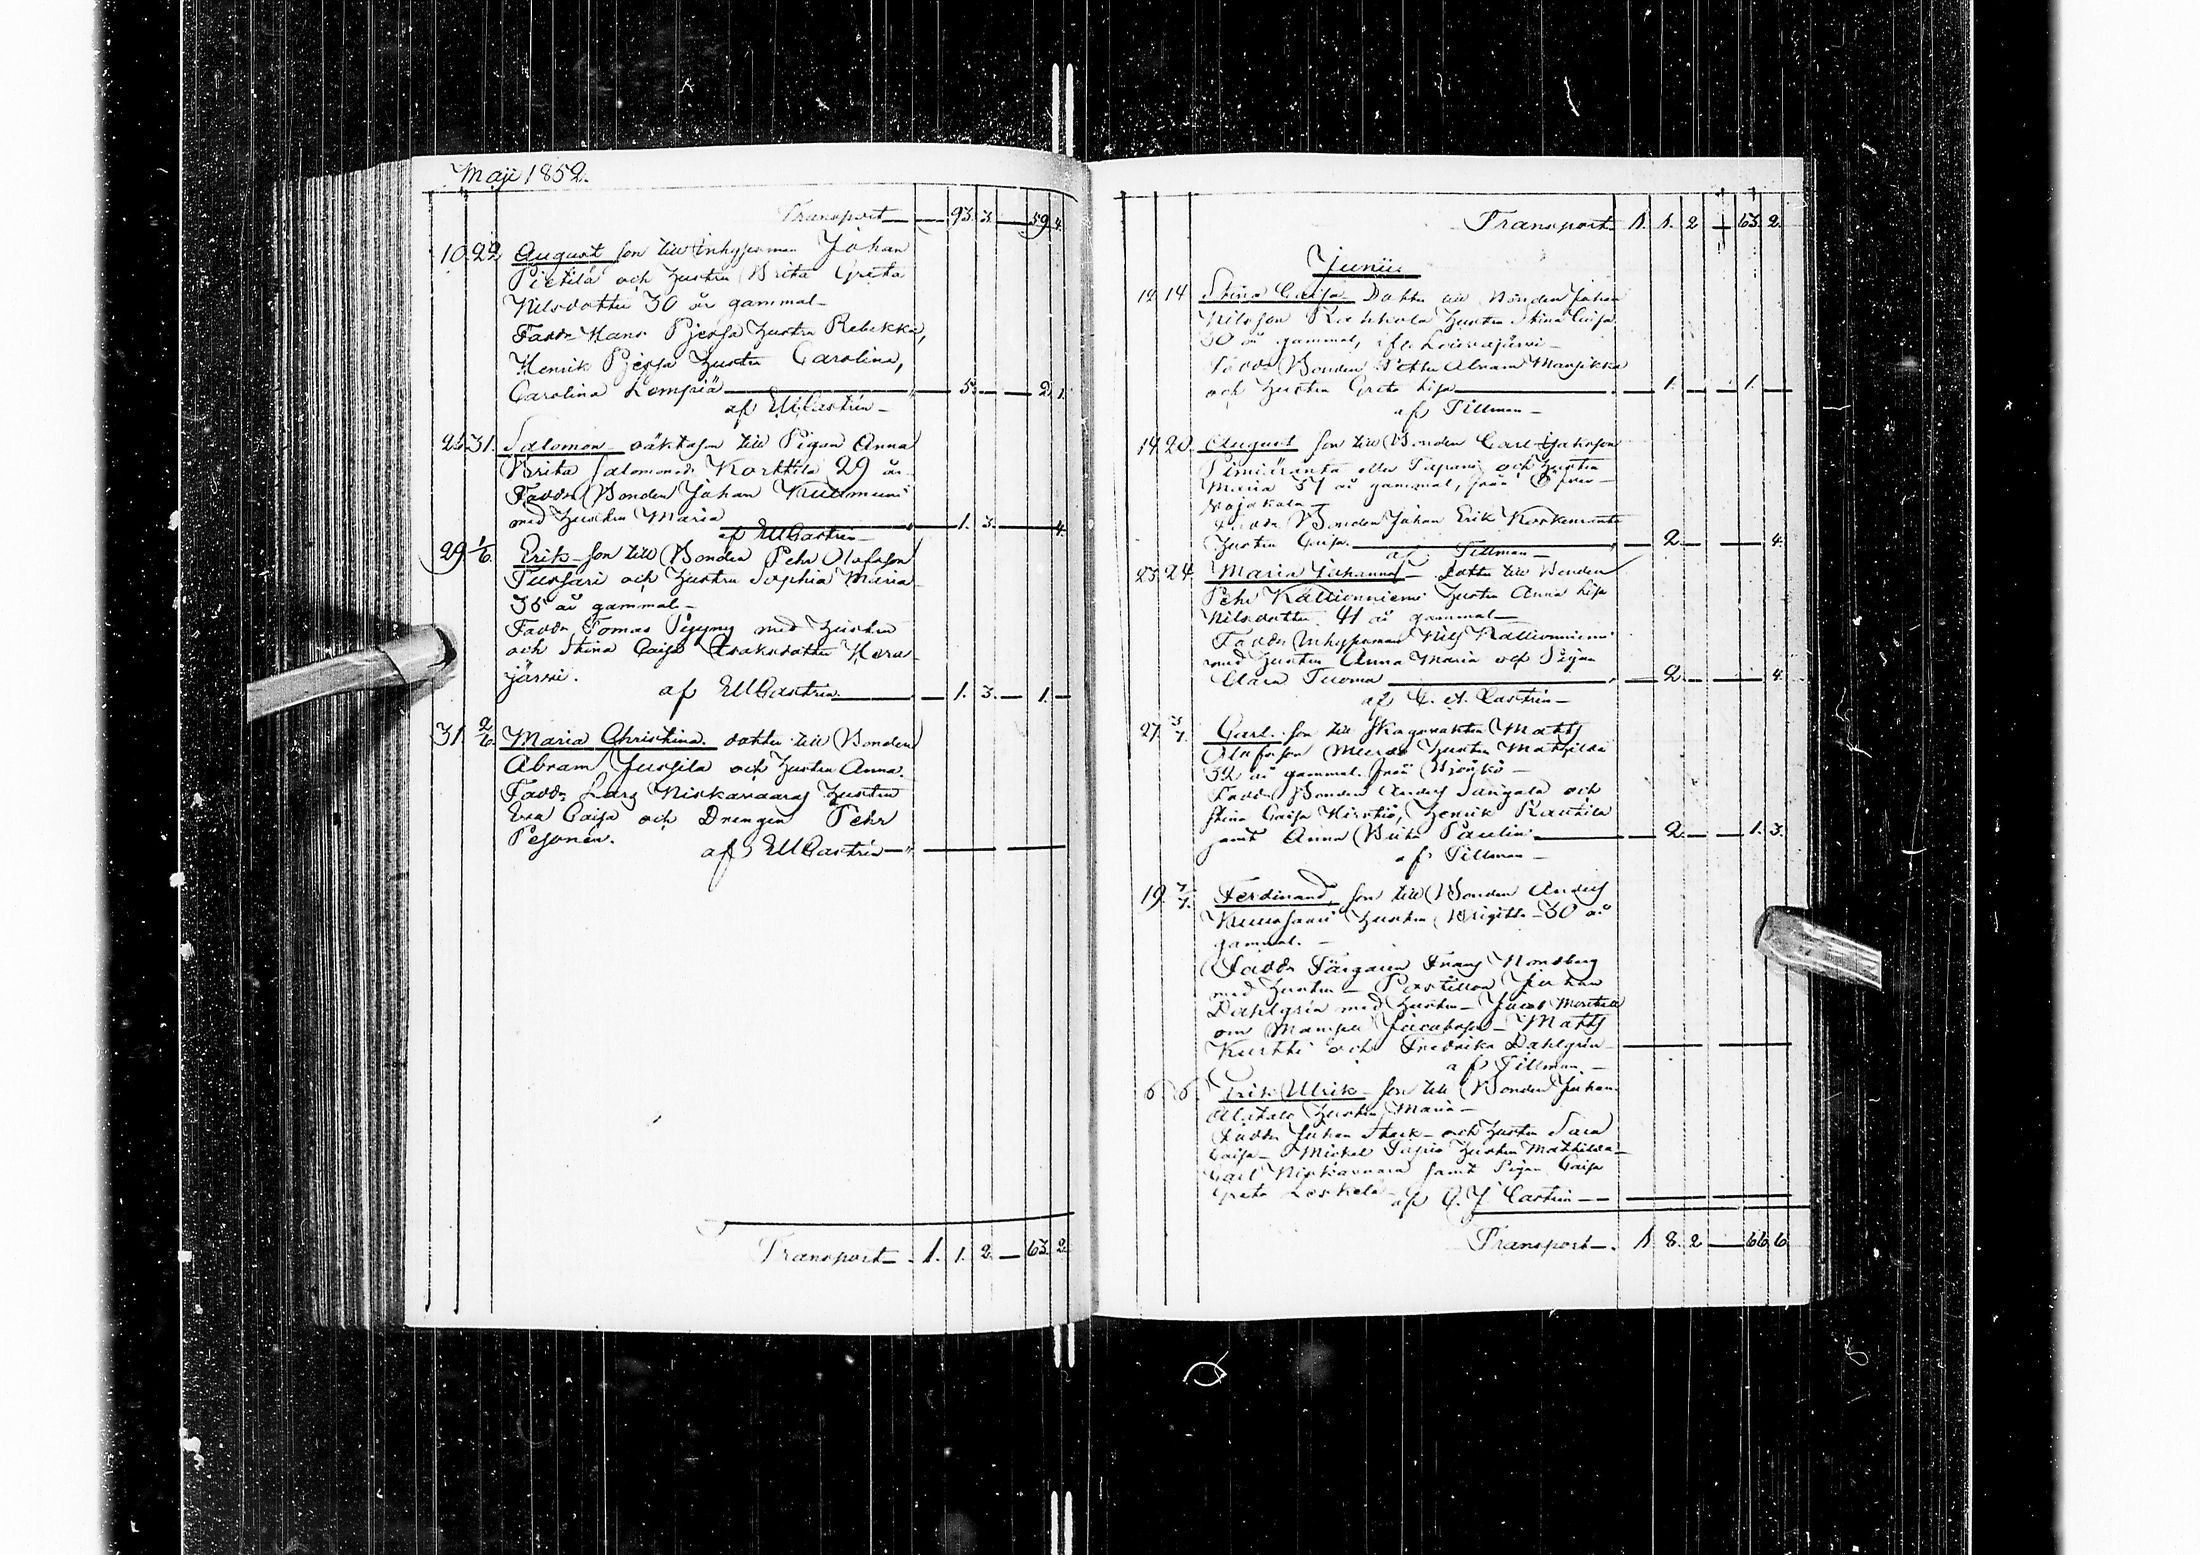 Maji 1852.
Transport — 93. 3. — 59 4.
10. 22 August son till Inhysman Johan
Pietilä och hustru Brita Greta
Nilsdotter 30 år gammal —
Fadd. Hans Pjessa hustru Rebekka,
Henrik Pjessa hustru Carolina,
Carolina Lempiä — 5. — 2. 1.
af EMCastrén —
31. Salomon oäkta son till Pigan Anna
Brita Salomonsd. Korttila 29 år
Fadd. Bonden Johan Kullmuni
med hustru Maria — 1. 3. — 4.
af EMCastrén —
29 1/6. Erik son till Bonden Pehr Olofsson
Tussari och hustru Sophia Maria
35 år gammal —
Fadd. Tomas Pyyny med hustru
och Stina Caisa Isaksdotter Hera-
järvi.
af EMCastrén — 1. 3. — 1. —
31. 2/6. Maria Christina. dotter till Bonden
Abram Jussila och hustru Anna.
Fadd. Lars Niskavaara hustru
Eva Caisa och Drengen Pehr
Pesonen.
af EMCastrén —
Transport — 1. 1. 2. — 63. 2.
Transport 1. 1. 2 — 63. 2.
Junii
14 Stina Caisa Dotter till Bonden Johan
Nilsson hustru Stina Caisa
30 år gammal,
Fadd. Bonden Petter Abram Mansikka
och hustru Greta Lisa — 1. — 1. —
af Tillman —
14. 20. August son till Bonden Carl
och hustru
Maria 37 år gammal, från Öfver-
Fadd. Bonden Johan Erik
hustru Caisa — 2. — 4.
af Tillman —
23. 24. Maria Johanna — Dotter till Bonden
Pehr Kallionniemi hustru Anna Lisa
Nilsdotter 41 år gammal —
Fadd. Inhysman Nils Kallionniemi
med hustru Anna Maria och Pigan
Clara Tuoma — 2. — 4.
af C. A. Castrén —
27. Carl. son till Matts
Olofsson hustru Mathilda
32 år gammal. från
Fadd. Bonden Anders Sangala och
Stina Caisa Henrik Rautila
samt Anna Brita Paulin — 2. — 1. 3.
af Tillman —
19. 7/7. Ferdinand, son till Bonden Anders
Kuusisaari hustru Brigitta 30 år
gammal. —
Fadd. Färgaren Frans Nordberg
med hustru — Postillon Johan
Dahlgrén med hustru — Jacob
Mamsell Jacobsson — Matts
Kurtti och Fredrika Dahlgrén —
af Tillman. —
6. Erik Ulrik — son till Bonden Johan
Alatalo hustru Maria —
Fadd. Johan Stark — och hustru Sara
Caisa — Mickel hustru Mathilda —
Carl Niskavaara samt Pigan Caisa
Greta Leskelä
af Castrén —
Transport — 1. 8. 2 — 66. 6